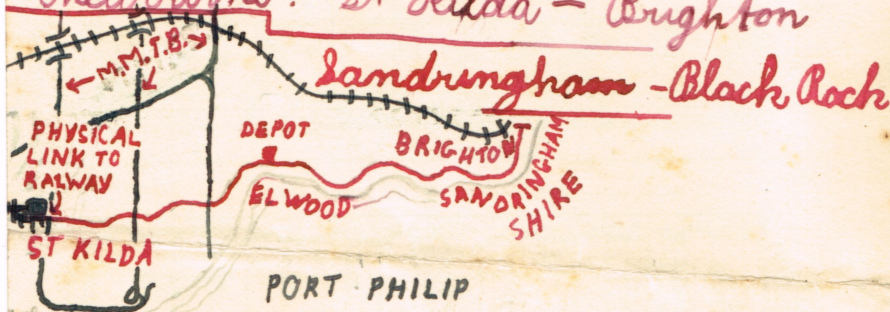 Melbourne: St Kilda – Brighton
Sandringham – Black Rock
M.M.T.B.
PHYSICAL
LINK TO
RALWAY
DEPOT
BRIGHTON
ELWOOD
SANDRINGHAM
SHIRE
ST KILDA
PORT PHILIP